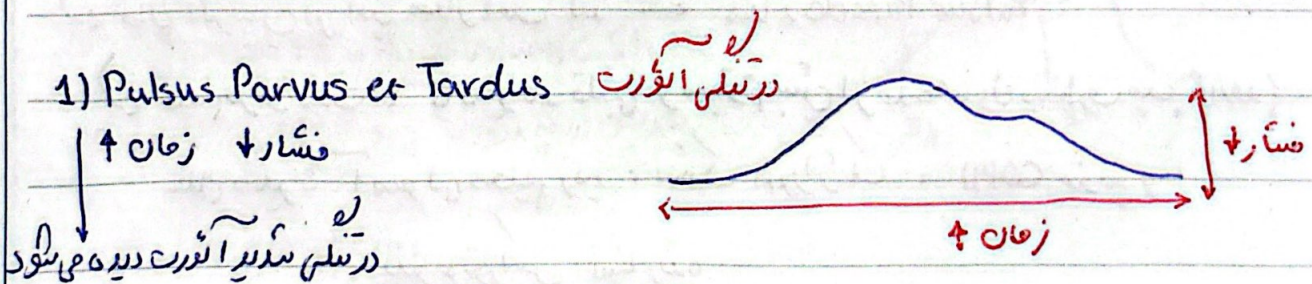 1) Pulsus Parvus et Tardus در تنگی آئورت
فشار ↓ زمان ↑
در تنگی شدید آئورت دیده می‌شود
فشار ↓
زمان ↑